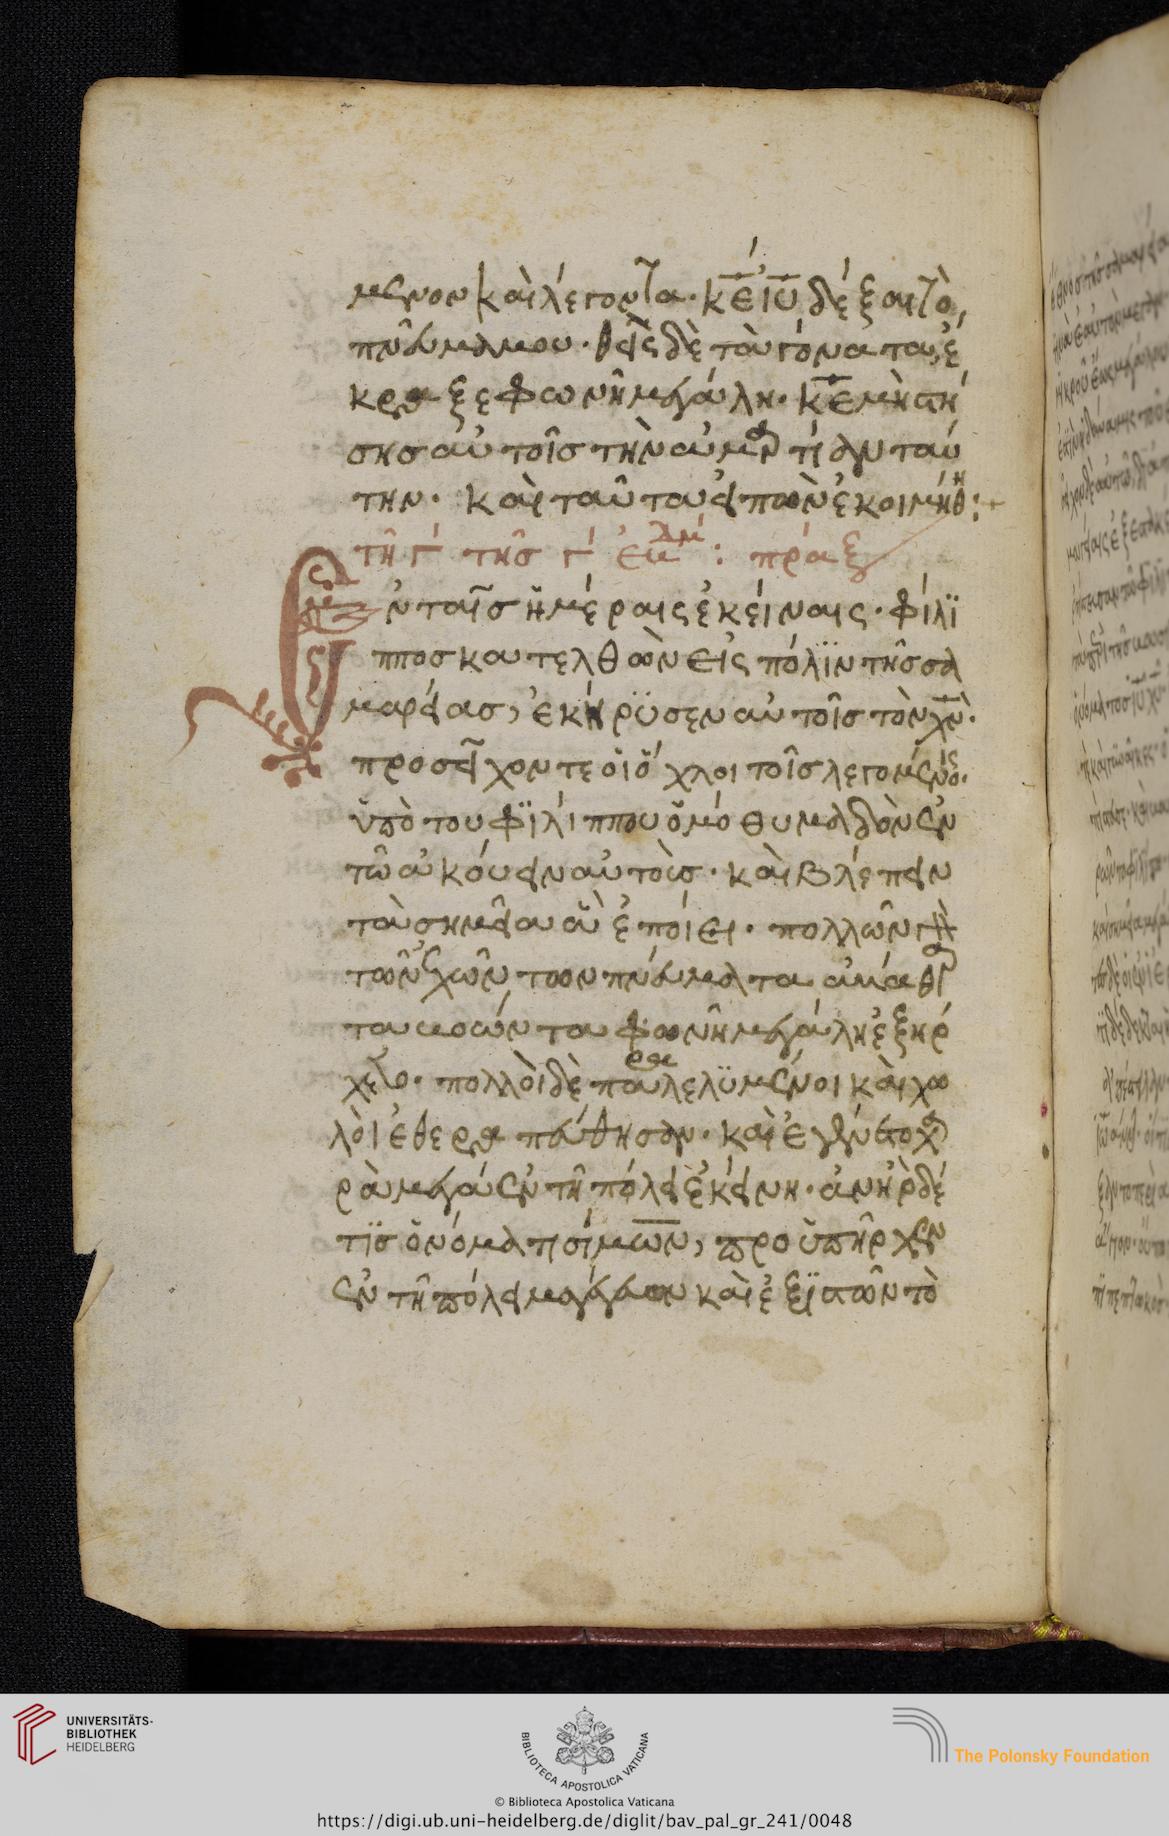 μενον καὶ λέγοντα· κ̅ε̅ ι̅υ̅ δέξαι τὸ
πνεῦμα μου· θεὶς δὲ τὰ γόνατα ἔ
κραξε φωνῆ μεγάλη· κ̅ε̅ μὴ στή
σησ αὐτοῖσ τὴν ἁμαρτίαν ταύ
την· καὶ ταῦτα εἰπὼν ἐκοιμήθη:
τῆ γ΄ τῆσ γ΄ πράξ
ἐν ταῖσ ἡμέραις ἐκείναις· φίλϊ
ππος κατελθὼν εἰς πόλϊν τῆσ σα
μαρείασ, ἐκήρϋσεν αὐτοῖσ τὸν χ̅ν̅·
προσεῖχον τε οἱ ὄχλοι τοῖσ λεγομένοις·
ὑπὸ του φϊλίππου ὁμοθυμαδὸν ἐν
τῶ ἀκούειν αὐτοὺσ· καὶ βλέπειν
τὰ σημεῖα ἃ ἐποίει· πολλῶν γὰρ
τῶν ἐχόντων πνεύματα ἀκάθαρ
τα βοῶντα φωνῆ μεγάλη ἐξήρ
χετο· πολλοὶ δὲ παραλελϋμένοι καὶ χω
λοὶ ἐθεραπεύθησαν· καὶ ἐγένετο χα
ρὰ μεγάλη ἐν τῆ πόλει ἐκείνη· ἀνὴρ δέ
τϊς ὀνόματι σίμων, προϋπῆρχεν
ἐν τῆ πόλει μαγεύων καὶ ἐξϊστῶν τὸ
UNIVERSITÄTS-
BIBLIOTHEK
HEIDELBERG
BIBLIOTECA APOSTOLICA VATICANA
The Polonsky Foundation
© Biblioteca Apostolica Vaticana
https://digi.ub.uni-heidelberg.de/diglit/bav_pal_gr_241/0048